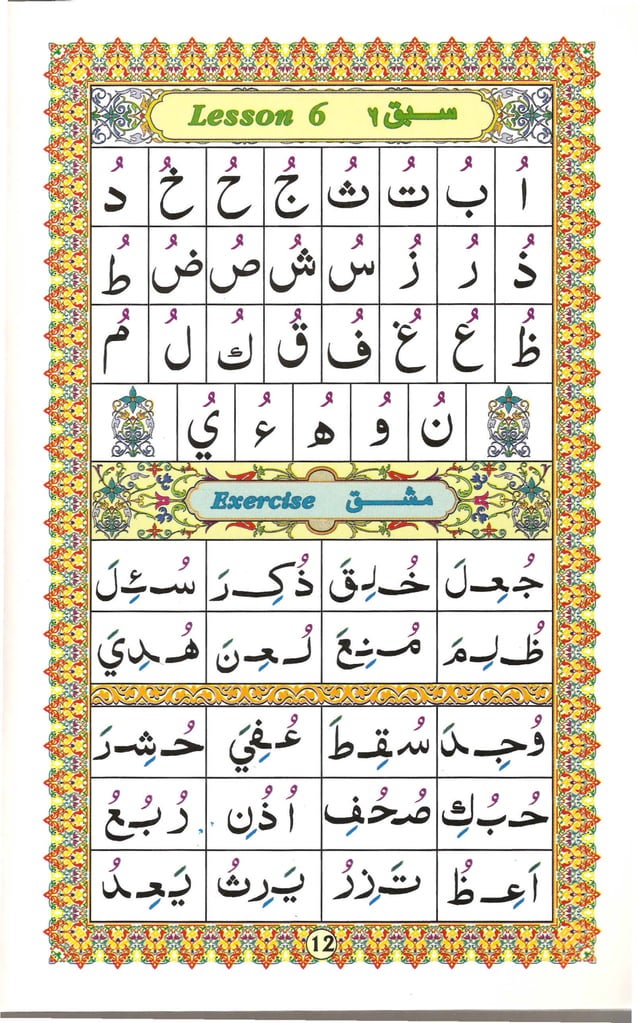 Lesson 6 سبق ٦
اُ بُ تُ ثُ جُ حُ خُ دُ
ذُ رُ زُ سُ شُ صُ ضُ طُ
ظُ عُ غُ فُ قُ كُ لُ مُ
نُ وُ هُ ءُ يُ
Exercise مشق
جُعِلَ خُلِقَ ذُكِرَ سُئِلَ
ظُلِمَ مُنِعَ لُعِنَ هُدِيَ
وُجِدَ سُقِطَ عُفِيَ حُشِرَ
حُبُكِ صُحُفِ اُذُنِ رُبُعُ
اَعِظُ تَزِرُ يَرِثُ يَعِدُ
12